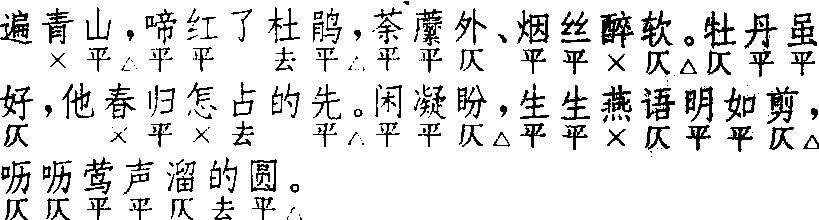 遍青山，啼红了杜鹃，荼蘼外、烟丝醉软。牡丹虽
×平△平平去平△平平仄平平×仄△仄平平
好，他春归怎占的先。闲凝盼，生生燕语明如剪，
仄×平×去平△平平仄△平平×仄平平仄△
呖呖莺声溜的圆。
仄仄平平仄去平△